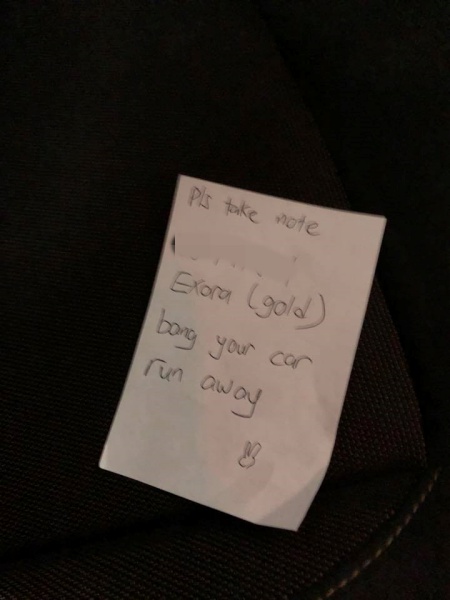 Pls take note
Exora (gold)
bang your car
run away